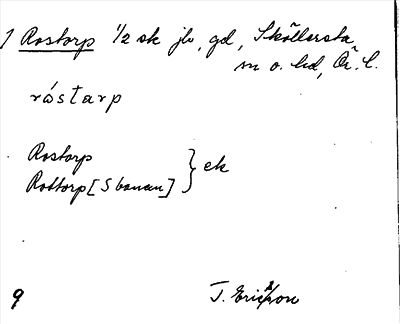 1 Rostorp 1/2 sk jb, gd, Sköllersta
sn o. hd, Ör. l.
ròstarp
Rostorp
Rottorp [Sbanan] } ek
9 T. Ericsson